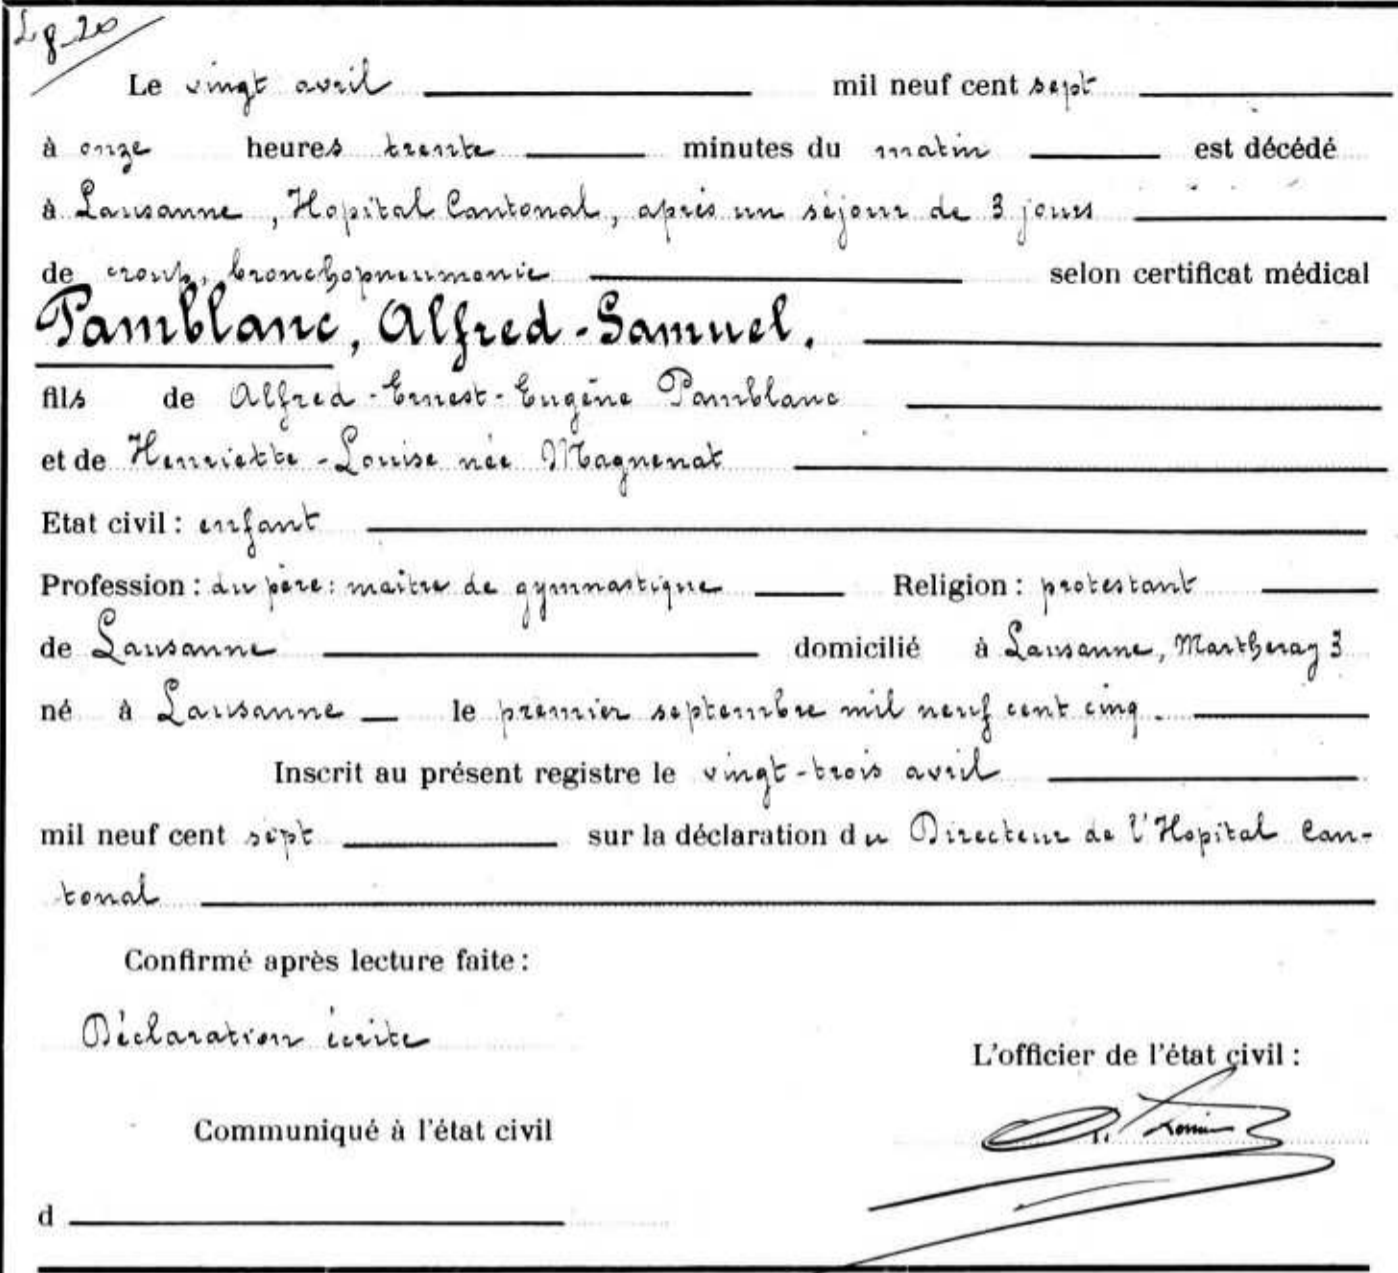 Le vingt avril mil neuf cent sept
à onze heures trente minutes du matin est décédé
à Lausanne, Hopital Cantonal, après un séjour de 3 jours
de croup, bronchopneumonie selon certificat médical
Pamblanc, Alfred-Samuel.
fils de Alfred-Ernest-Eugène Pamblanc
et de Henriette-Louise née Magnenat
Etat civil : enfant
Profession : du père : maître de gymnastique Religion : protestant
de Lausanne domicilié à Lausanne, Martheray 3
né à Lausanne le premier septembre mil neuf cent cinq.
Inscrit au présent registre le vingt-trois avril
mil neuf cent sept sur la déclaration du Directeur de l'Hopital Can-
tonal
Confirmé après lecture faite :
Déclaration écrite
L'officier de l'état civil :
Communiqué à l'état civil
d